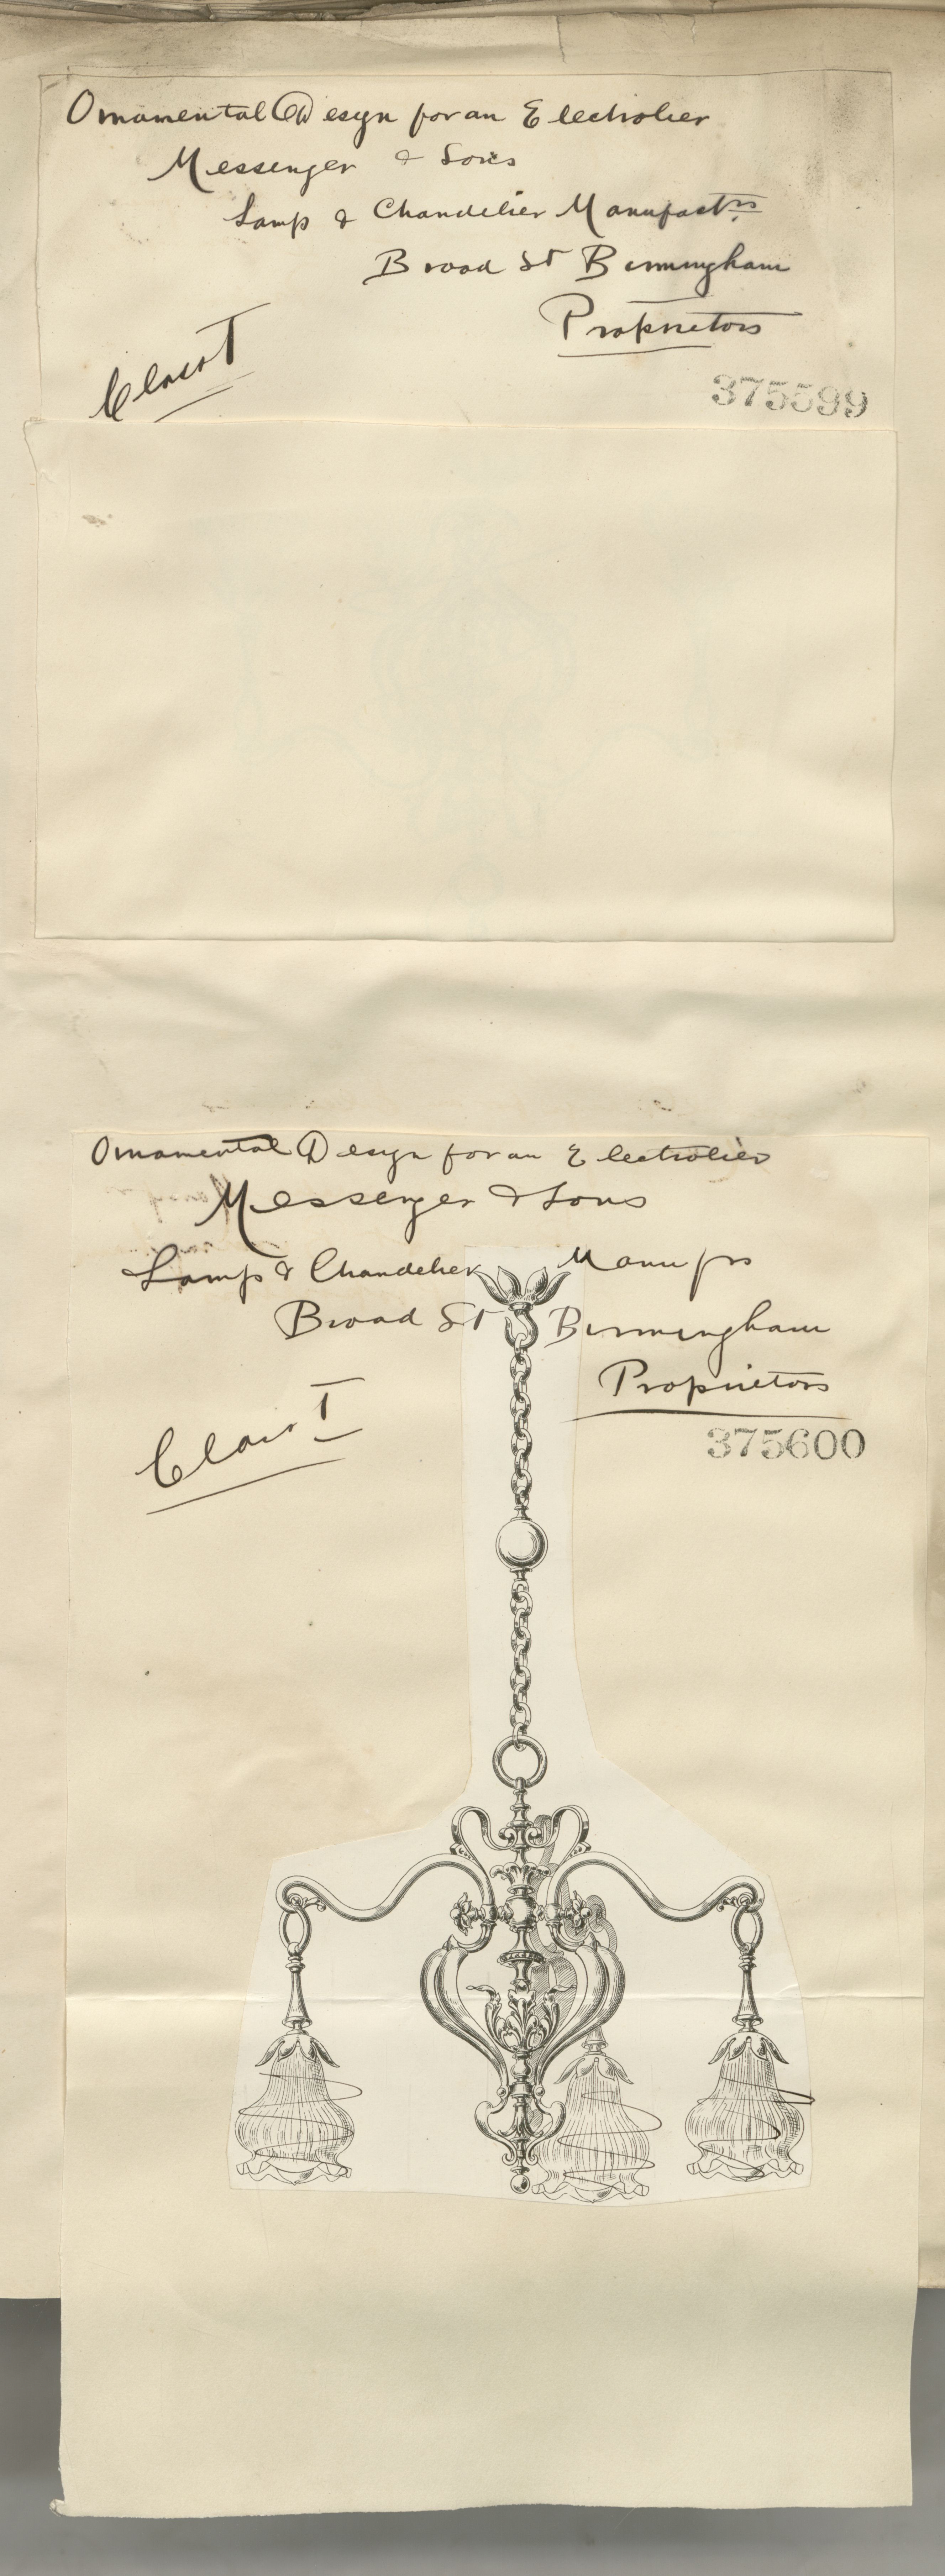 Ornamental Design for an Electrolier
Messenger & Sons
Lamp & Chandelier Manufactrs
Broad St Birmingham
Proprietors
Class I
375599
Ornamental Design for an Electrolier
Messenger & Sons
Lamp & Chandelier Manufrs
Broad St Birmingham
Proprietors
Class I
375600